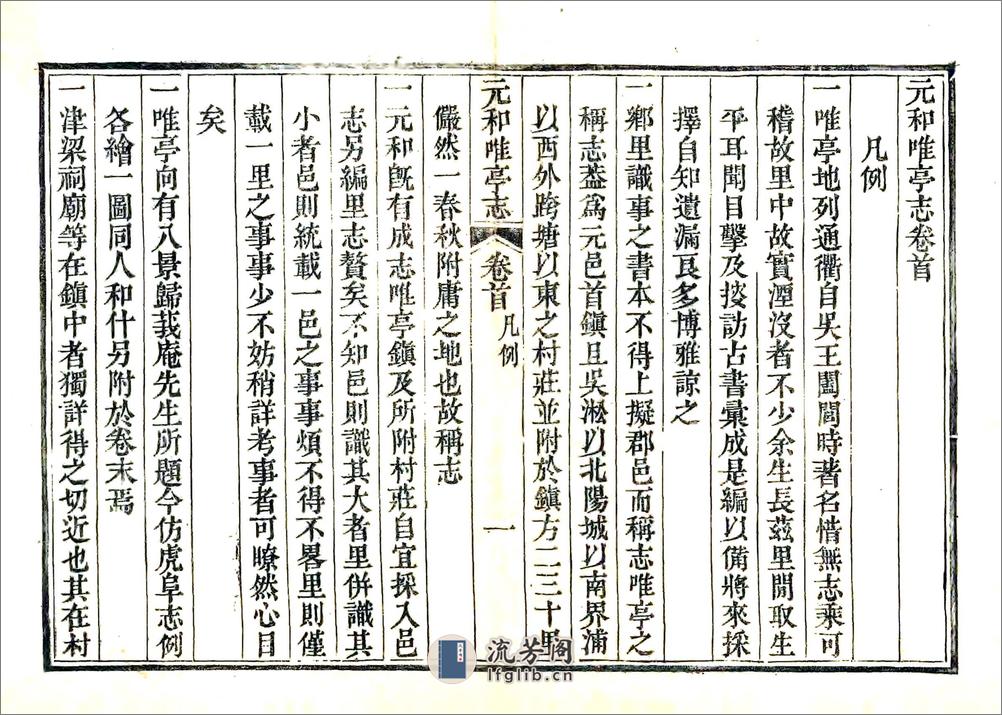 元和唯亭志卷首
凡例
一唯亭地列通衢自吳王闔閭時著名惜無志乘可
稽故里中故實湮沒者不少余生長茲里閒取生
平耳聞目擊及搜訪古書彙成是編以備將來採
擇自知遺漏良多博雅諒之
一鄉里識事之書本不得上擬郡邑而稱志唯亭之
稱志葢爲元邑首鎮且吳淞以北陽城以南界浦
以西外跨塘以東之村莊並附於鎮方二三十里
元和唯亭志 卷首 凡例 一
儼然一春秋附庸之地也故稱志
一元和旣有成志唯亭鎮及所附村莊自宜採入邑
志另編里志贅矣不知邑則識其大者里併識其
小者邑則統載一邑之事事煩不得不畧里則僅
載一里之事事少不妨稍詳考事者可瞭然心目
矣
一唯亭向有八景歸莪庵先生所題今仿虎阜志例
各繪一圖同人和什另附於卷末焉
一津梁祠廟等在鎮中者獨詳得之切近也其在村
流芳阁
lfglib.cn